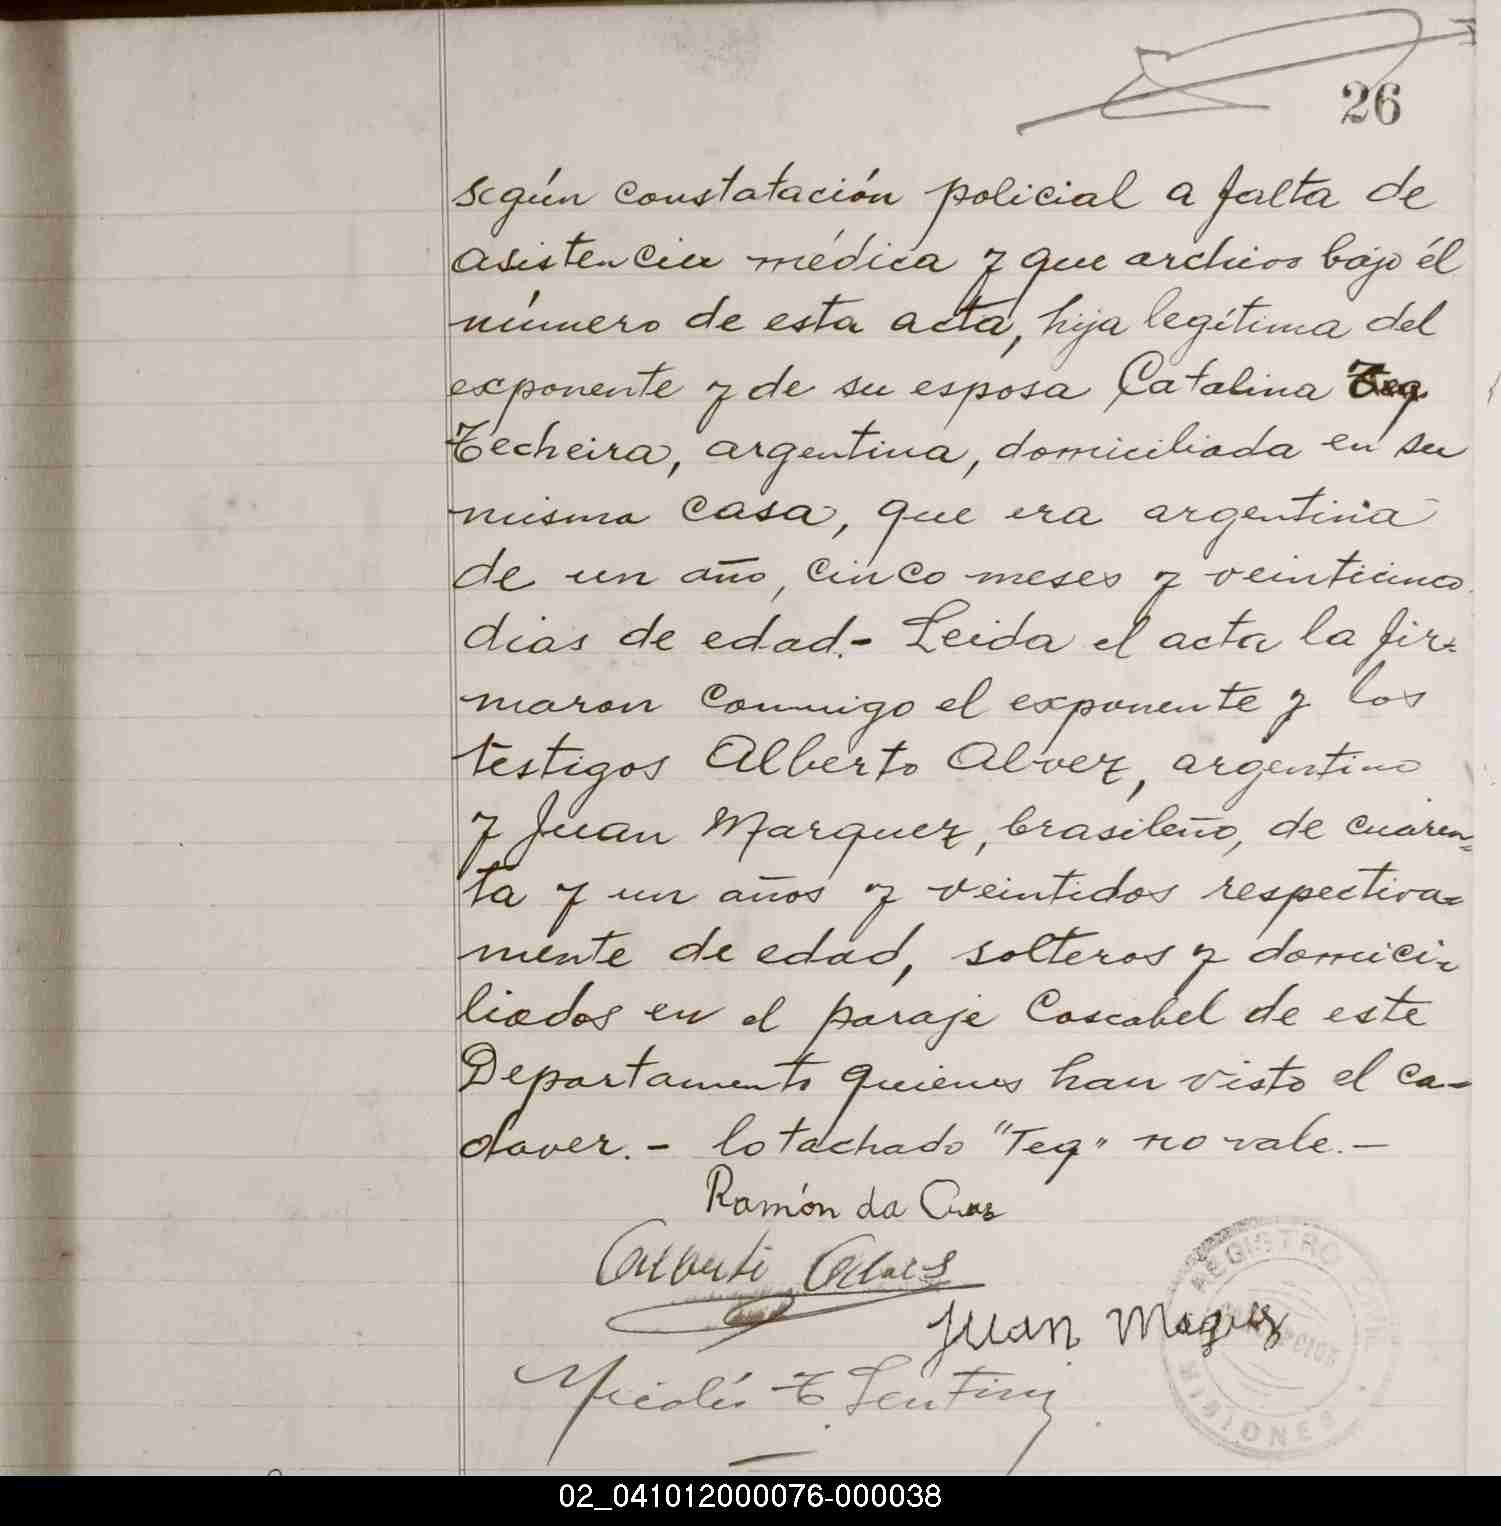 26
según constatación policial a falta de
asistencia médica y que archivo bajo él
número de esta acta, hija legítima del
exponente y de su esposa Catalina Teq
Techeira, argentina, domiciliada en su
misma casa, que era argentina
de un año, cinco meses y veinticinco
dias de edad.- Leida el acta la fir=
maron conmigo el exponente y los
testigos Alberto Alvez, argentino
y Juan Marquez, brasileño, de cuaren=
ta y un años y veintidos respectiva=
mente de edad, solteros y domici=
liados en el paraje Cascabel de este
Departamento quienes han visto el ca-
daver.- lo tachado "Teq" no vale.-
Ramón da Cruz
Alberto
Juan
REGISTRO CIVIL
MISIONES
02_041012000076-000038